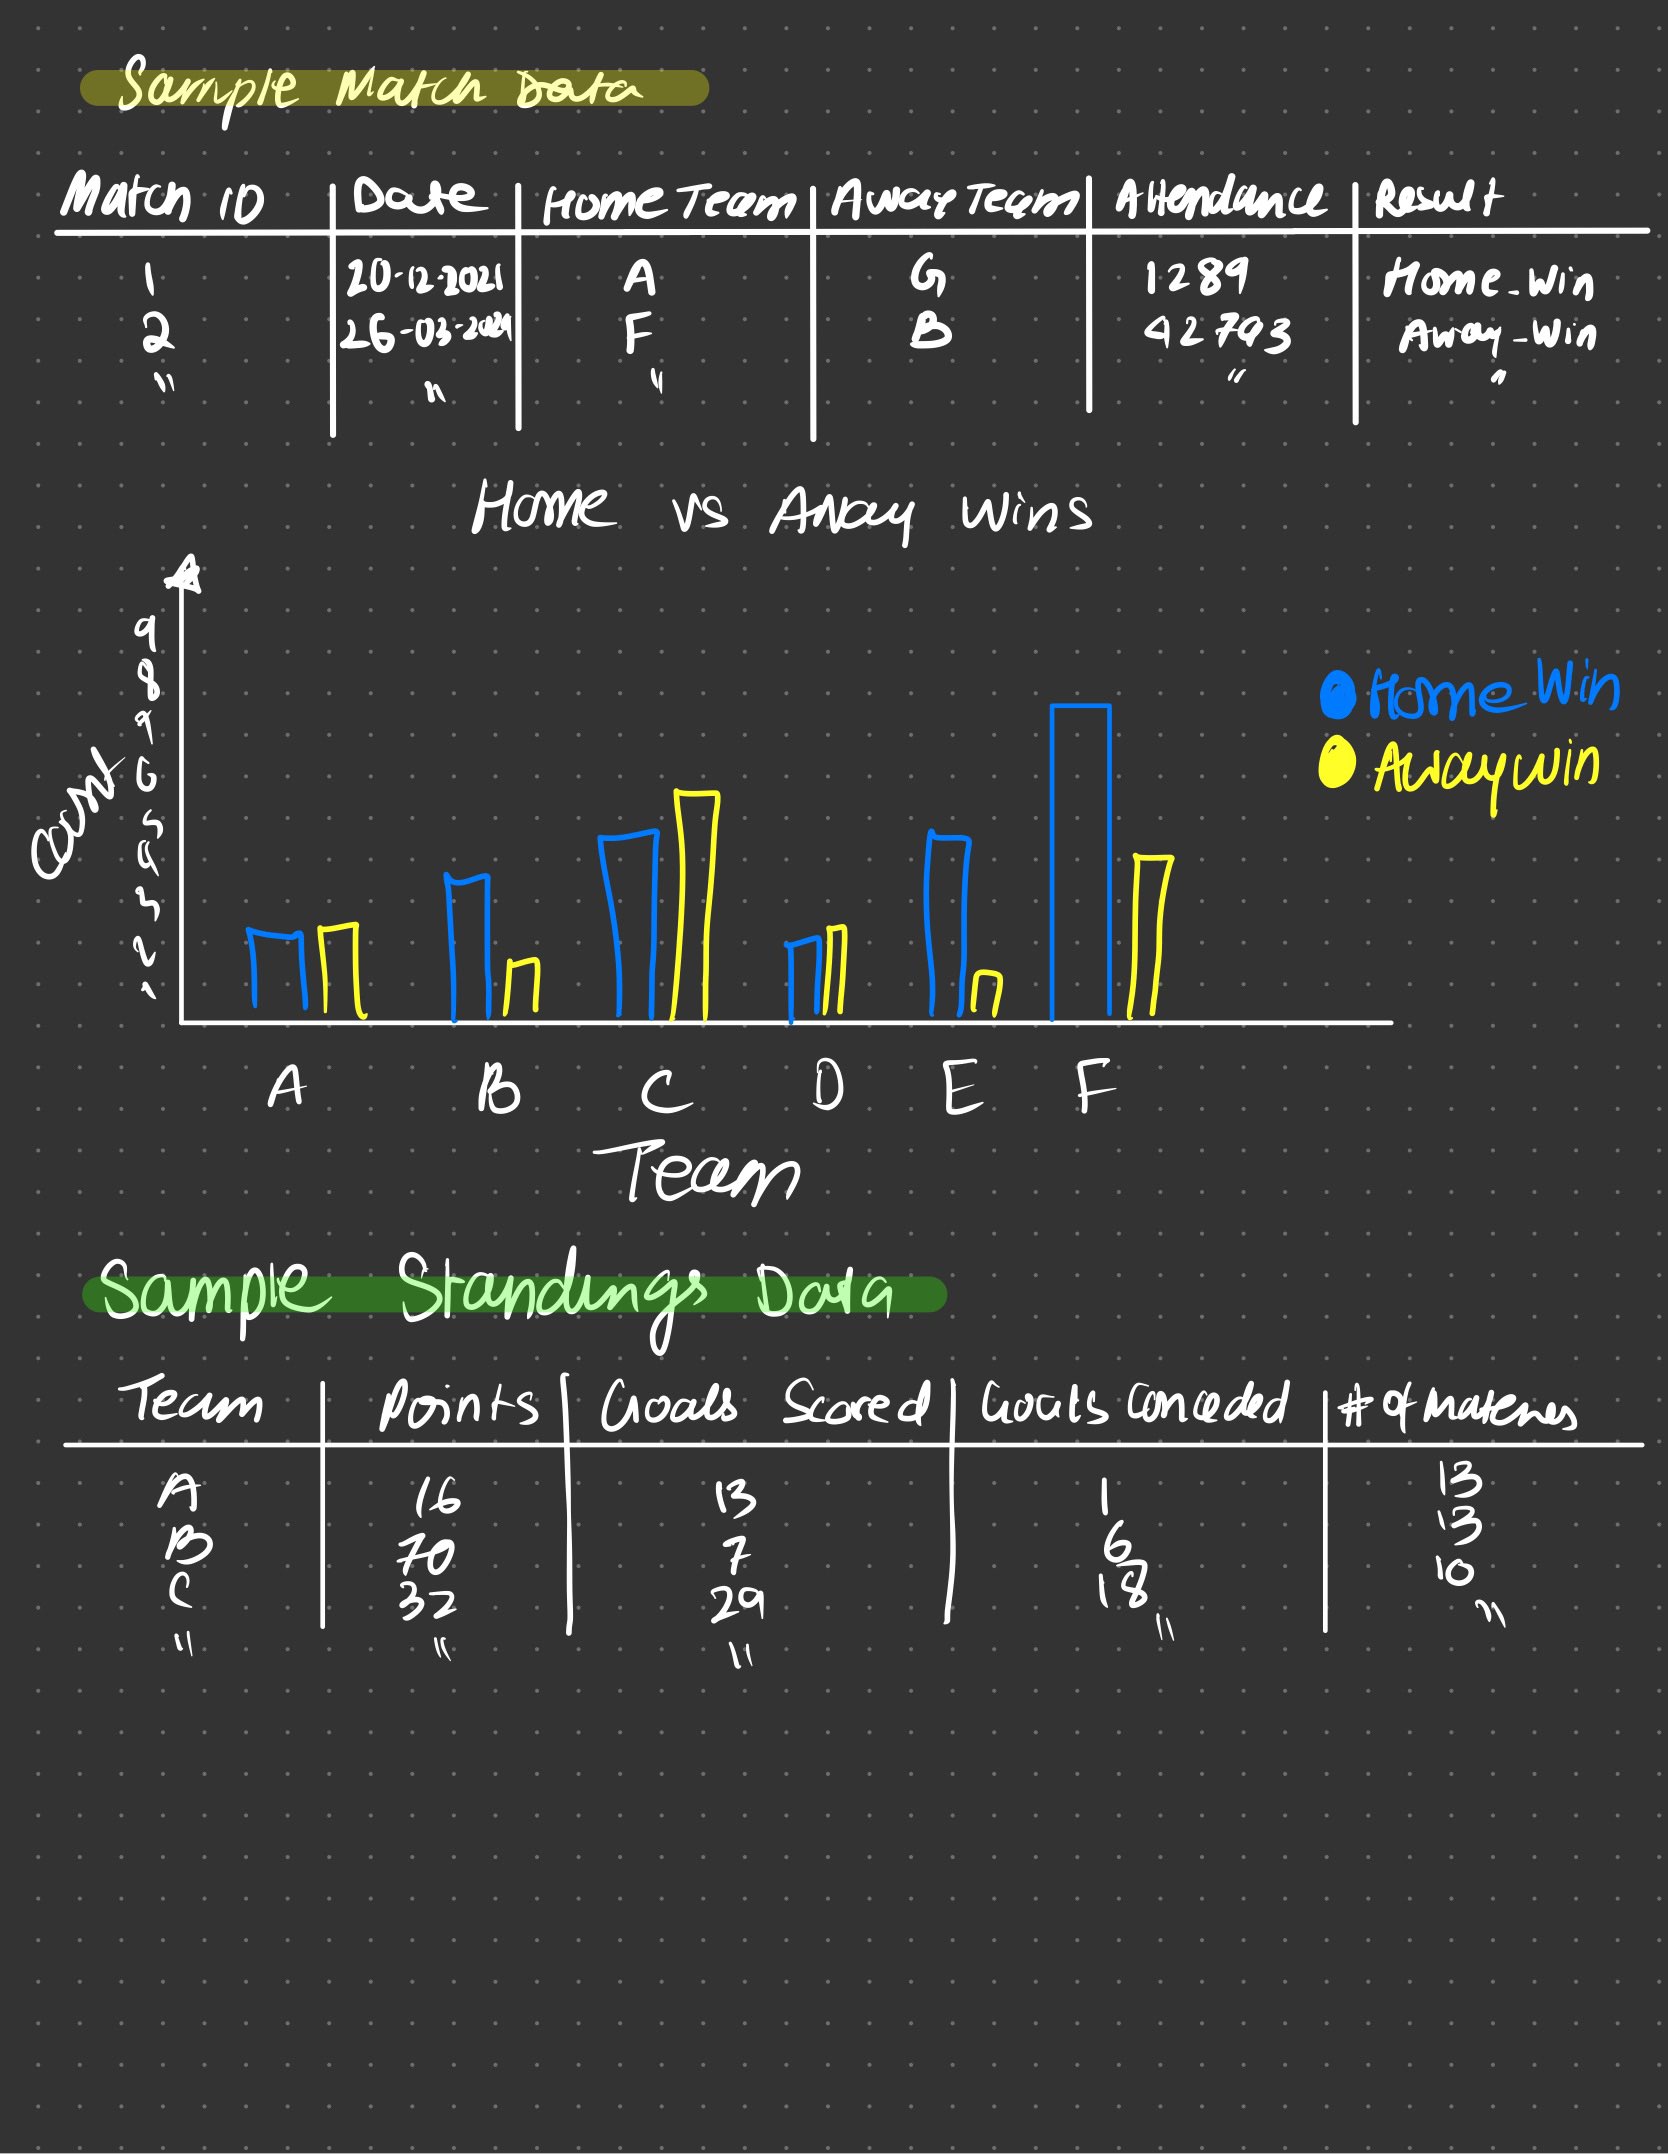 Sample Match Data
Match ID Date Home Team Away Team Attendance Result
1 20-12-2021 A G 1289 Home_Win
2 26-03-2024 F B 42793 Away_Win
" " " " "
Home vs Away Wins
9
8
7
6
5
4
3
2
1
Count
Home Win
Away Win
A B C D E F
Team
Sample Standings Data
Team Points Goals Scored Goals Conceded # of Matches
A 16 13 1 13
B 70 7 6 13
C 32 29 18 10
" " " " "